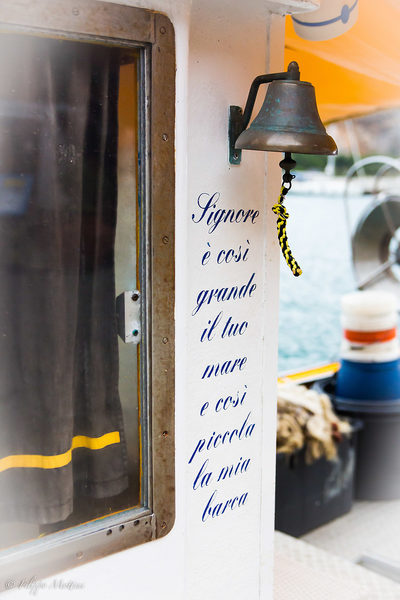 Signore
è così
grande
il tuo
mare
e così
piccola
la mia
barca